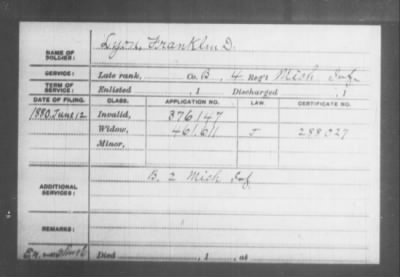 NAME OF SOLDIER: Lyon, Franklin D.
SERVICE: Late rank, Co. B, 4 Reg't Mich Inf.
TERM OF SERVICE: Enlisted , 1 Discharged , 1
DATE OF FILING. CLASS. APPLICATION NO. LAW. CERTIFICATE NO.
1880 June 12 Invalid, 376147
Widow, 461611 J 288027
Minor,
ADDITIONAL SERVICES: B. 2 Mich Inf
REMARKS:
Died , 1 , at